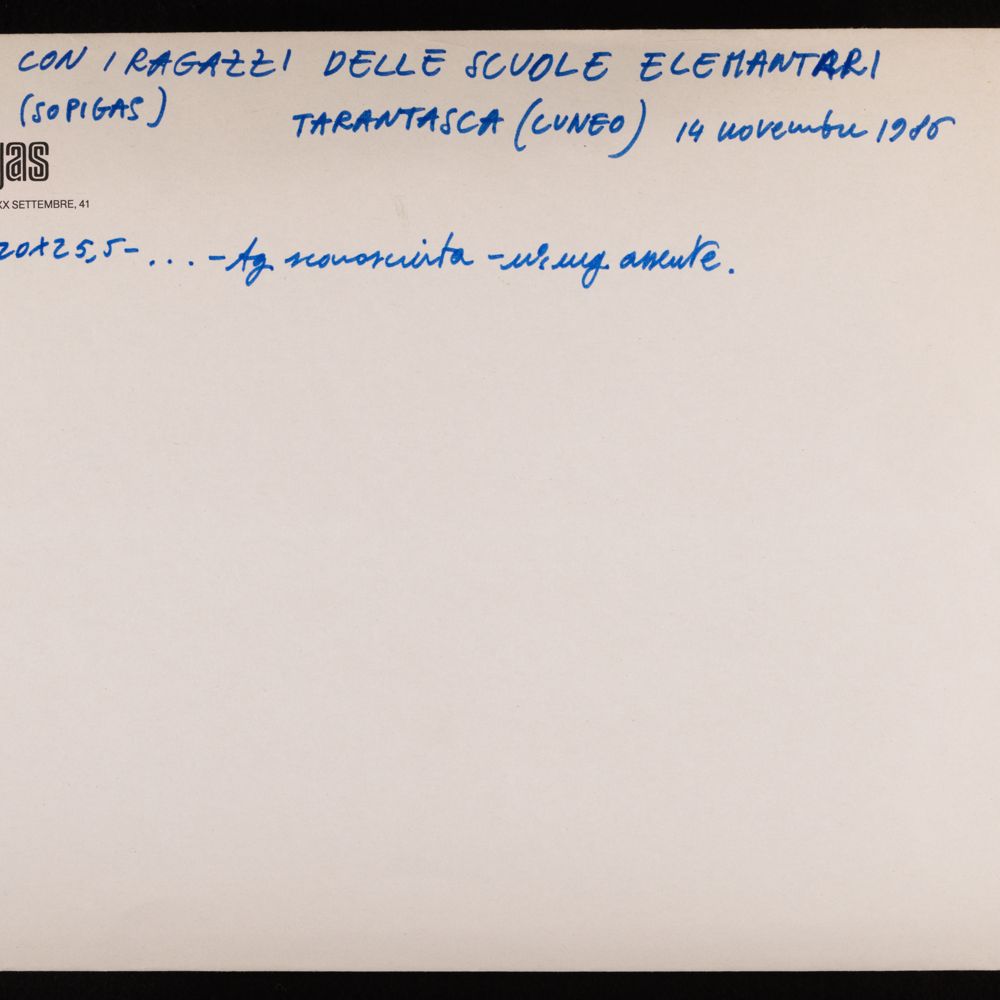 CON I RAGAZZI DELLE SCUOLE ELEMANTARI
(SOPIGAS) TARANTASCA (CUNEO) 14 novembre 1986
gas
XX SETTEMBRE, 41
20x25,5-...-Ag sconosciuta - assente.